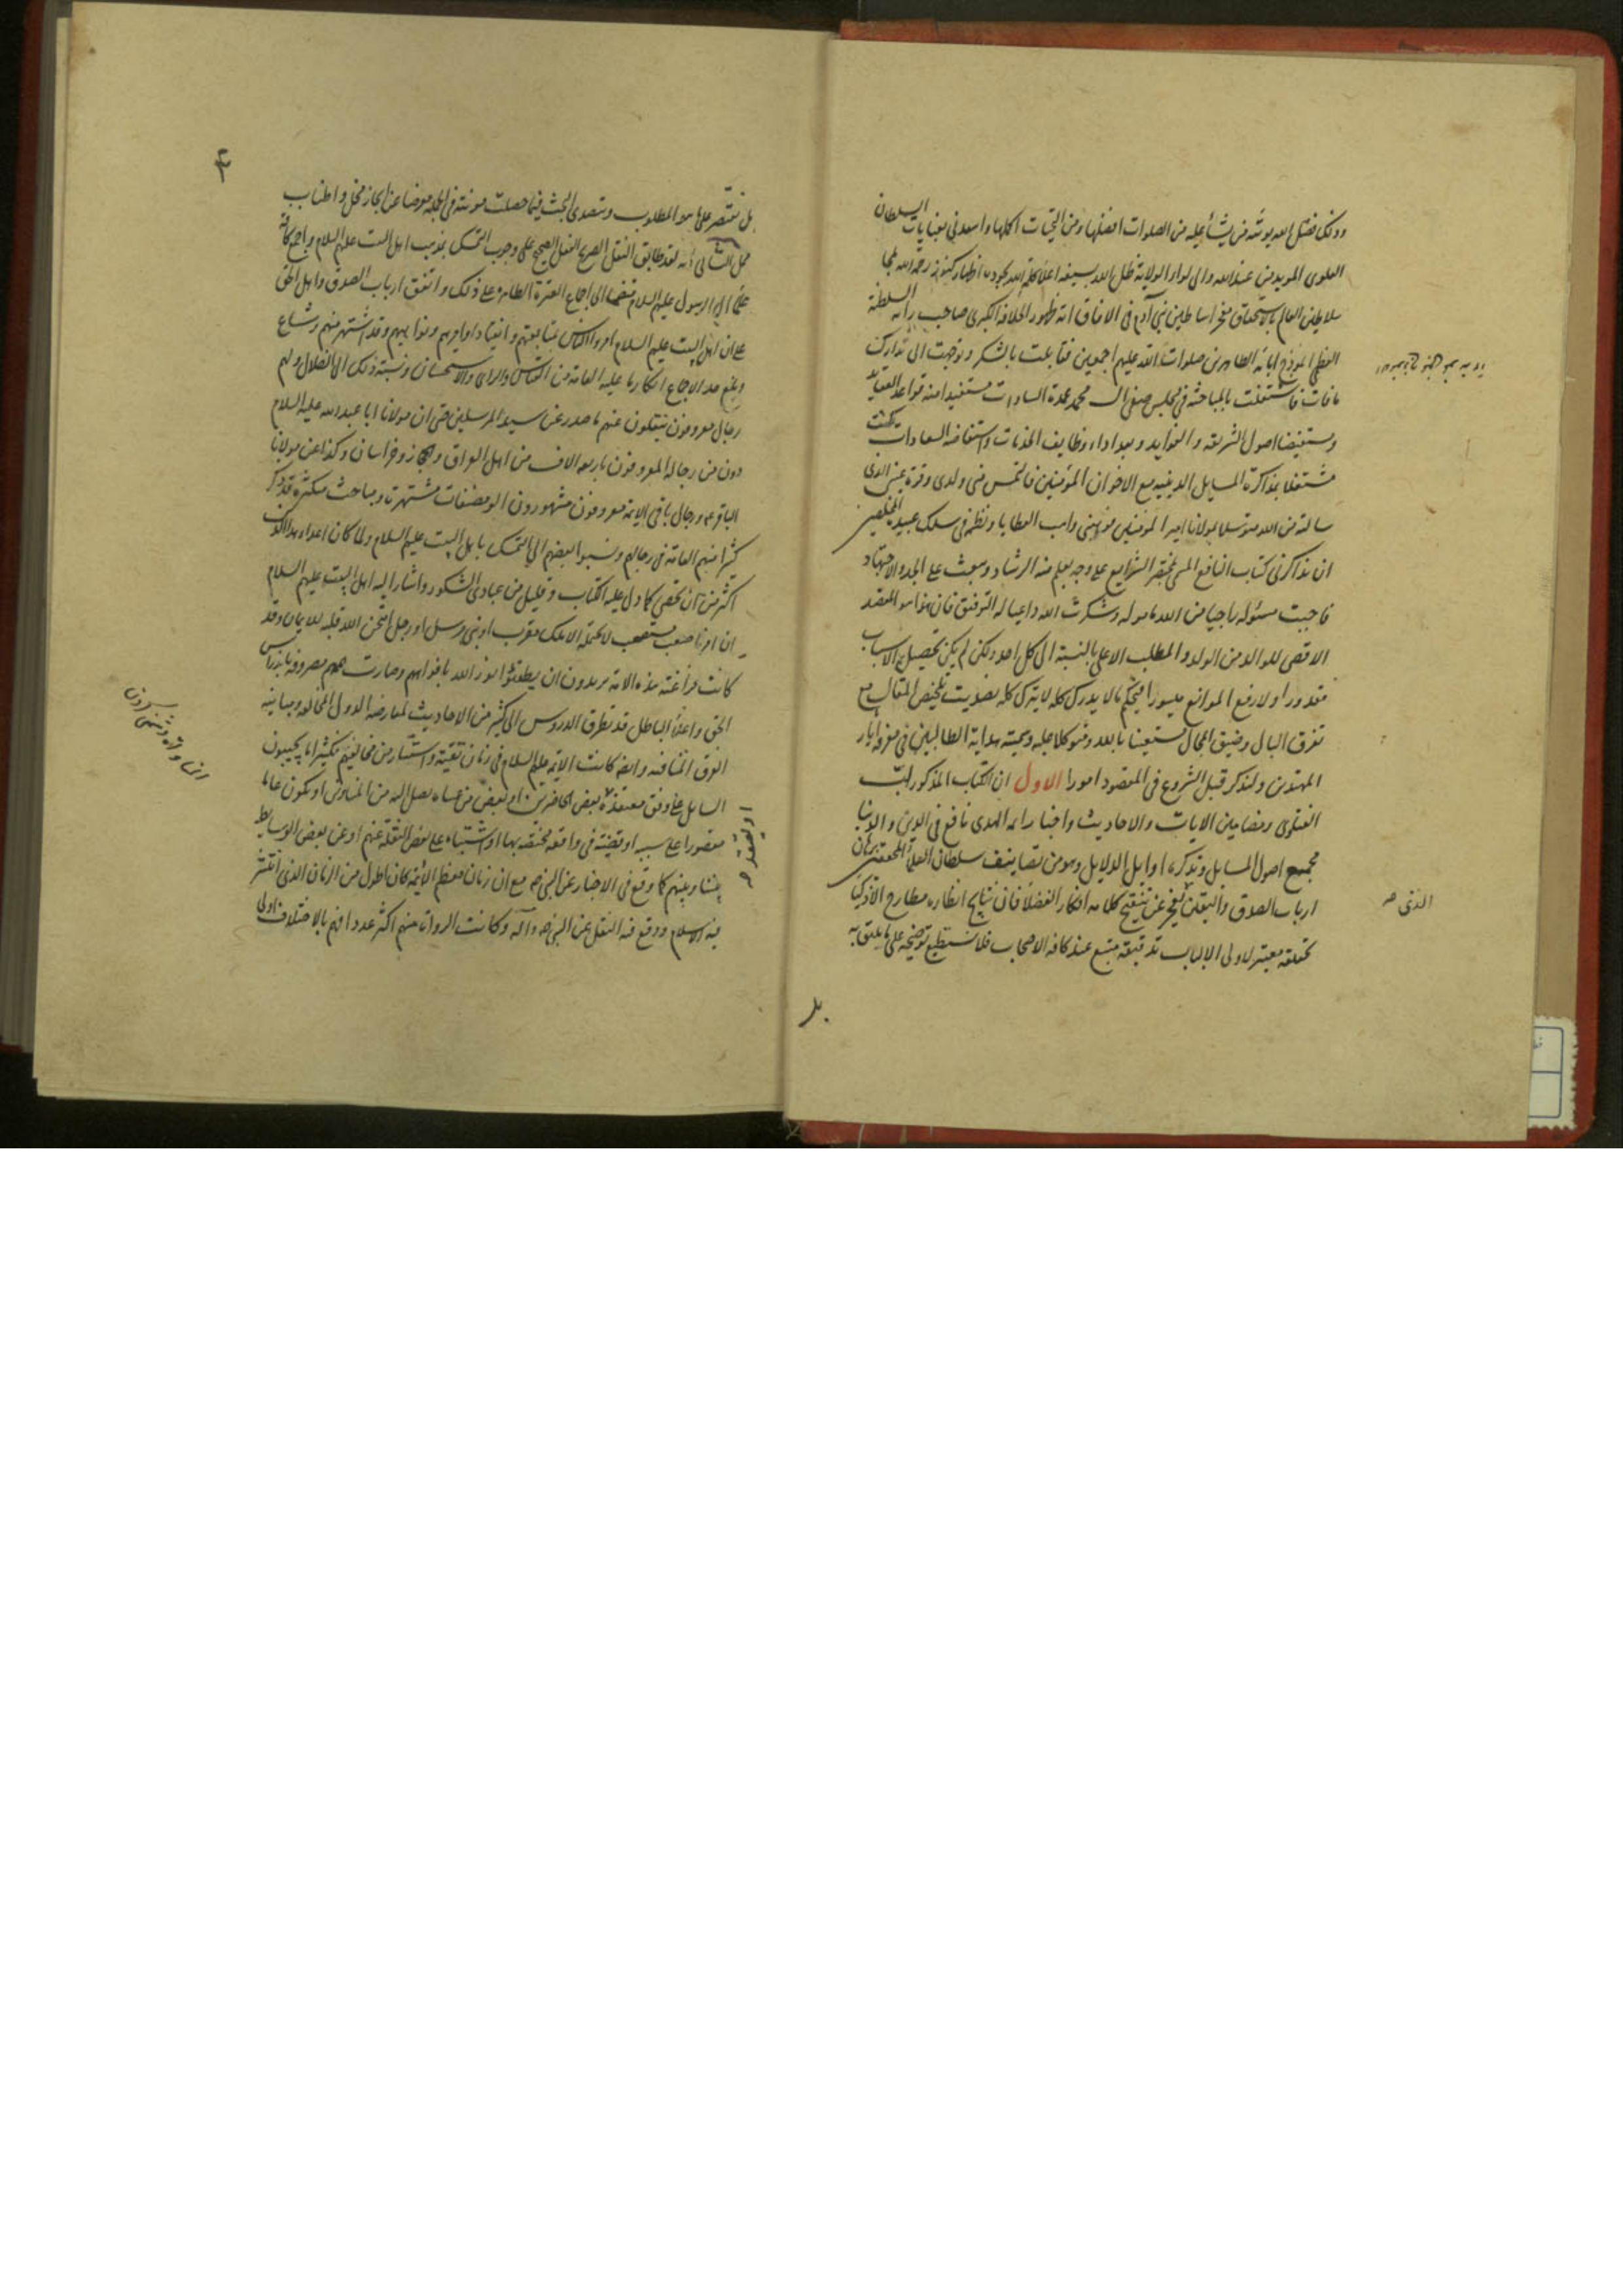 وذلك فضل الله يؤتيه من يشاء عليه من الصلوات افضلها ومن التحيات اكملها واسعدني بعنايات السلطان
العلوى المويد من عند الله والى لواء الولاية ظل الله بسيفه اعلاء كلمة الله بجوده اظهار كنوز رحمة الله ملجا
سلاطين العالم بالاستحقاق مفخر اساطين بنى آدم فى الافاق انه ظهور الخلافة الكبرى صاحب راية السلطنة
العظمى انموذج ابائه الطاهرين صلوات الله عليهم اجمعين فقابلت بالشكر وتوجهت الى تدارك
ما فات فاشتغلت بالمباحثة فى مجلس محمد عمدة السادات مستفيدا منه قواعد العقايد
ومستفيضا اصول الشريعة والفوايد وبعد اداء وظايف الخدمات واستفاضة السعادات كنت
مشتغلا بمذاكرة المسايل الدينيه مع الاخوان المؤمنين فالتمس منى ولدى وقرة عينى الذى
سالته من الله متوسلا بمولانا امير المؤمنين فوهبنى واهب العطايا ونظمه فى سلك عبيده المخلصين
ان نذاكرنى كتاب النافع المسمى بمختصر الشرايع على وجه يعلم منه الرشاد ويبعث على الجد والاجتهاد
فاجبت مسئوله راجيا من الله ماموله وشكرت الله داعيا له التوفيق فان هذا هو المقصد
الاقصى للوالد من الولد والمطلب الاعلى بالنسبة الى كل احد ولكن لم يكن تحصيل الاسباب
مقدورا ولا رفع الموانع ميسورا فبحكم ما لا يدرك كله لا يترك كله بتلخيص المقال مع
تفرق البال وضيق المجال مستعينا بالله ومتوكلا عليه وسميته هداية الطالبين فى معرفة
المهتدين ولنذكر قبل الشروع فى المقصود امورا الاول ان الكتاب المذكور لب
الفتاوى ومضامين الايات والاحاديث واخبار ائمة الهدى نافع فى الدين والدنيا
مجمع اصول المسايل وتذكرة اوايل الدلايل وهو من تصانيف سلطان العلماء المحققين
ارباب الصدق واليقين تنقيح كلامه افكار الفضلاء فان نتايج انظاره مطارح الاذكياء
تحقيقه معتبر لاولى الالباب تدقيقه متبع عند كافة الاصحاب فلا نستطيع توضيحه على ما يليق به
الذى صح
بل
۴
بل نقتصر على ما هو المطلوب ونتصدى البحث فيما حصلت مونته فى الجملة معرضا عن ايجاز مخل واطناب
ممل الثانى انه لقد طابق النقل الصريح العقل الصحيح على وجوب التمسك بمذهب اهل البيت عليهم السلام واجمع كافة
علماء ال الرسول عليهم السلام منضما الى اجماع العترة الطاهرة على ذلك واتفق ارباب الصدق واهل الحق
على ان اهل البيت عليهم السلام امروا الناس بمتابعتهم وانقياد اوامرهم ونواهيهم وقد اشتهر منهم وشاع
وبلغ حد الاجماع انكارنا عليه العامة من القياس والراى والاستحسان ونسبة ذلك الى الضلال ولهم
رجال معروفون ينقلون عنهم ما صدر عن سيد المرسلين حتى ان مولانا ابا عبد الله عليه السلام
دون من رجاله المعروفون باربعة الاف من اهل العراق والحجاز وخراسان وكذا عن مولانا
الباقر ع ورجال باقى الايمة معروفون مشهورون اولو مصنفات مشتهرة ومباحث متكثرة قد ذكر
كثيرا منهم العامة فى رجالهم ونسبوا بعضهم الى التمسك باهل البيت عليهم السلام ولما كان اعداء هذا
اكثر من ان تحصى كما دل عليه الكتاب وقليل من عبادى الشكور واشار اليه اهل البيت عليهم السلام
ان امرنا صعب مستصعب لا يحتمله الا ملك مقرب او نبى مرسل او رجل امتحن الله قلبه للايمان وقد
كانت فراعنة هذه الامة يريدون ان يطفئوا نور الله بافواههم وصارت هممهم مصروفة باندراس
الحق واعلاء الباطل قد تطرق الدروس الى كثير من الاحاديث لمعارضة الدول المخالفة ومباينة
الفرق المنافية وايضا كانت الايمة عليهم السلام فى زمان تقية واستتار من مخالفيهم فكثيرا ما يجيبون
السايل على وفق معتقده او بعض الحاضرين او بعض من عساه يصل اليه من المناوين او يكون عاما
مقصورا على سببه او قضية فى واقعة مختصة بها او اشتباه على بعض النقلة عنهم او عن بعض الوسايط
بيننا وبينهم كما وقع فى الاخبار عن النبى ص مع ان زمان معظم الائمة كان اطول من الزمان الذى انتشر
فيه الاسلام ووقع فيه النقل عن النبى ص وآله وكانت الرواة عنهم اكثر عددا فهم بالاختلاف اولى